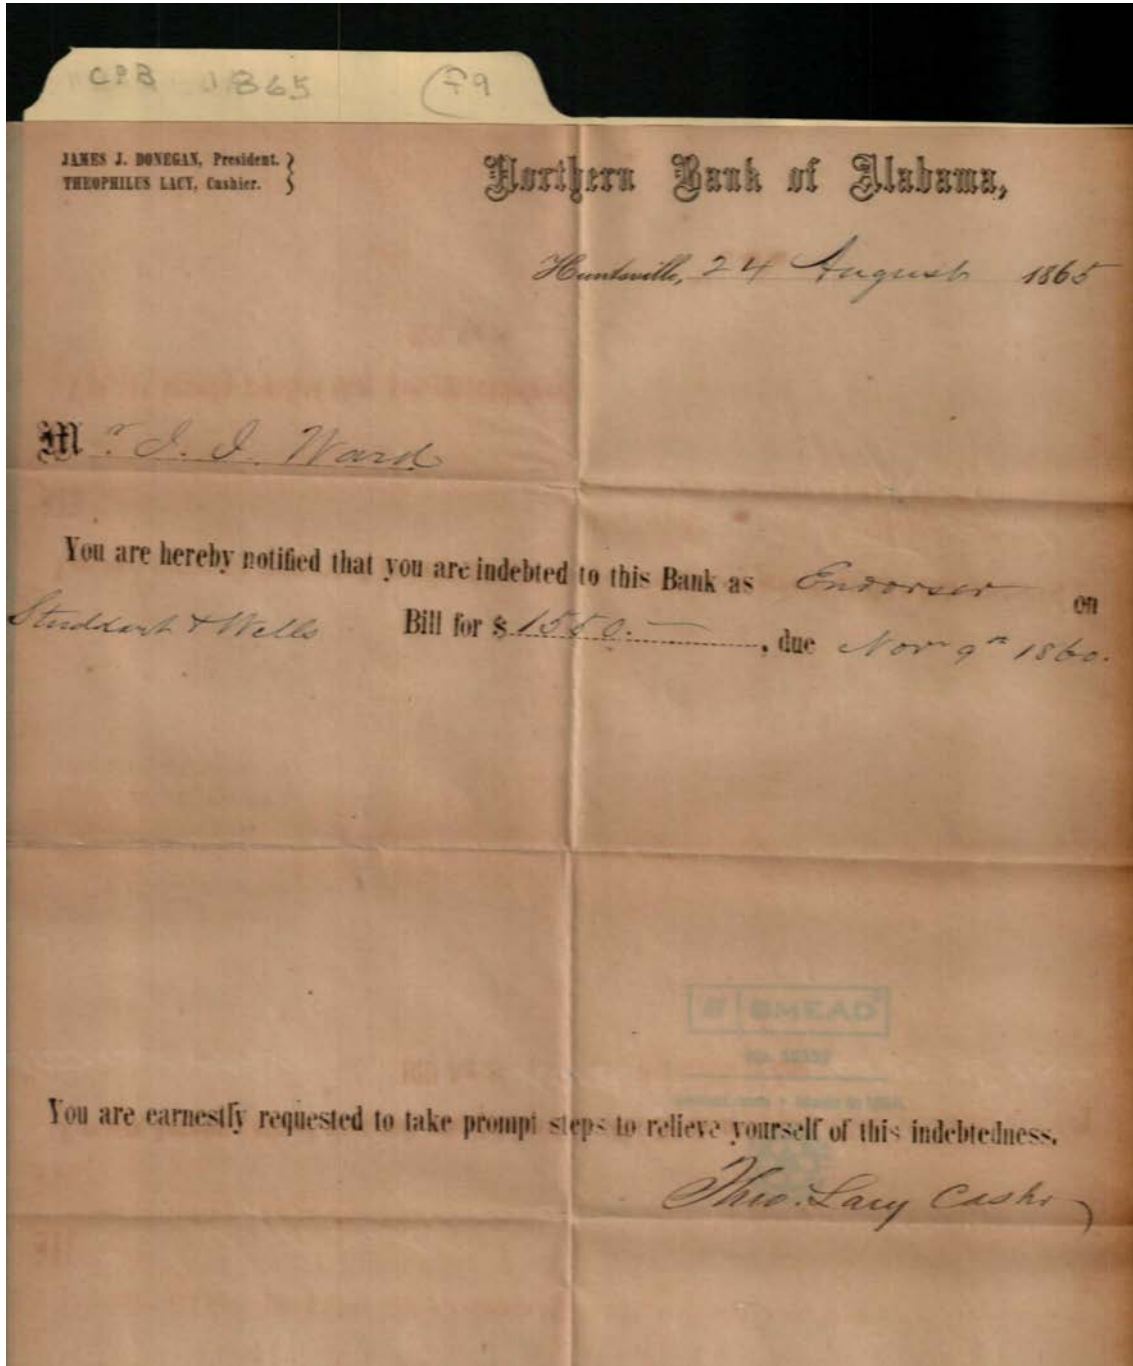 CPB 1865 F9
JAMES J. DONEGAN, President.
THEOPHILUS LACY, Cashier.
Northern Bank of Alabama,
Huntsville, 24 August 1865
Mr. J. J. Ward
You are hereby notified that you are indebted to this Bank as Endorser on
Studdart & Wells Bill for $1550.—, due Nov 9th 1860.
SMEAD
You are earnestly requested to take prompt steps to relieve yourself of this indebtedness.
Theo. Lacy Cashr